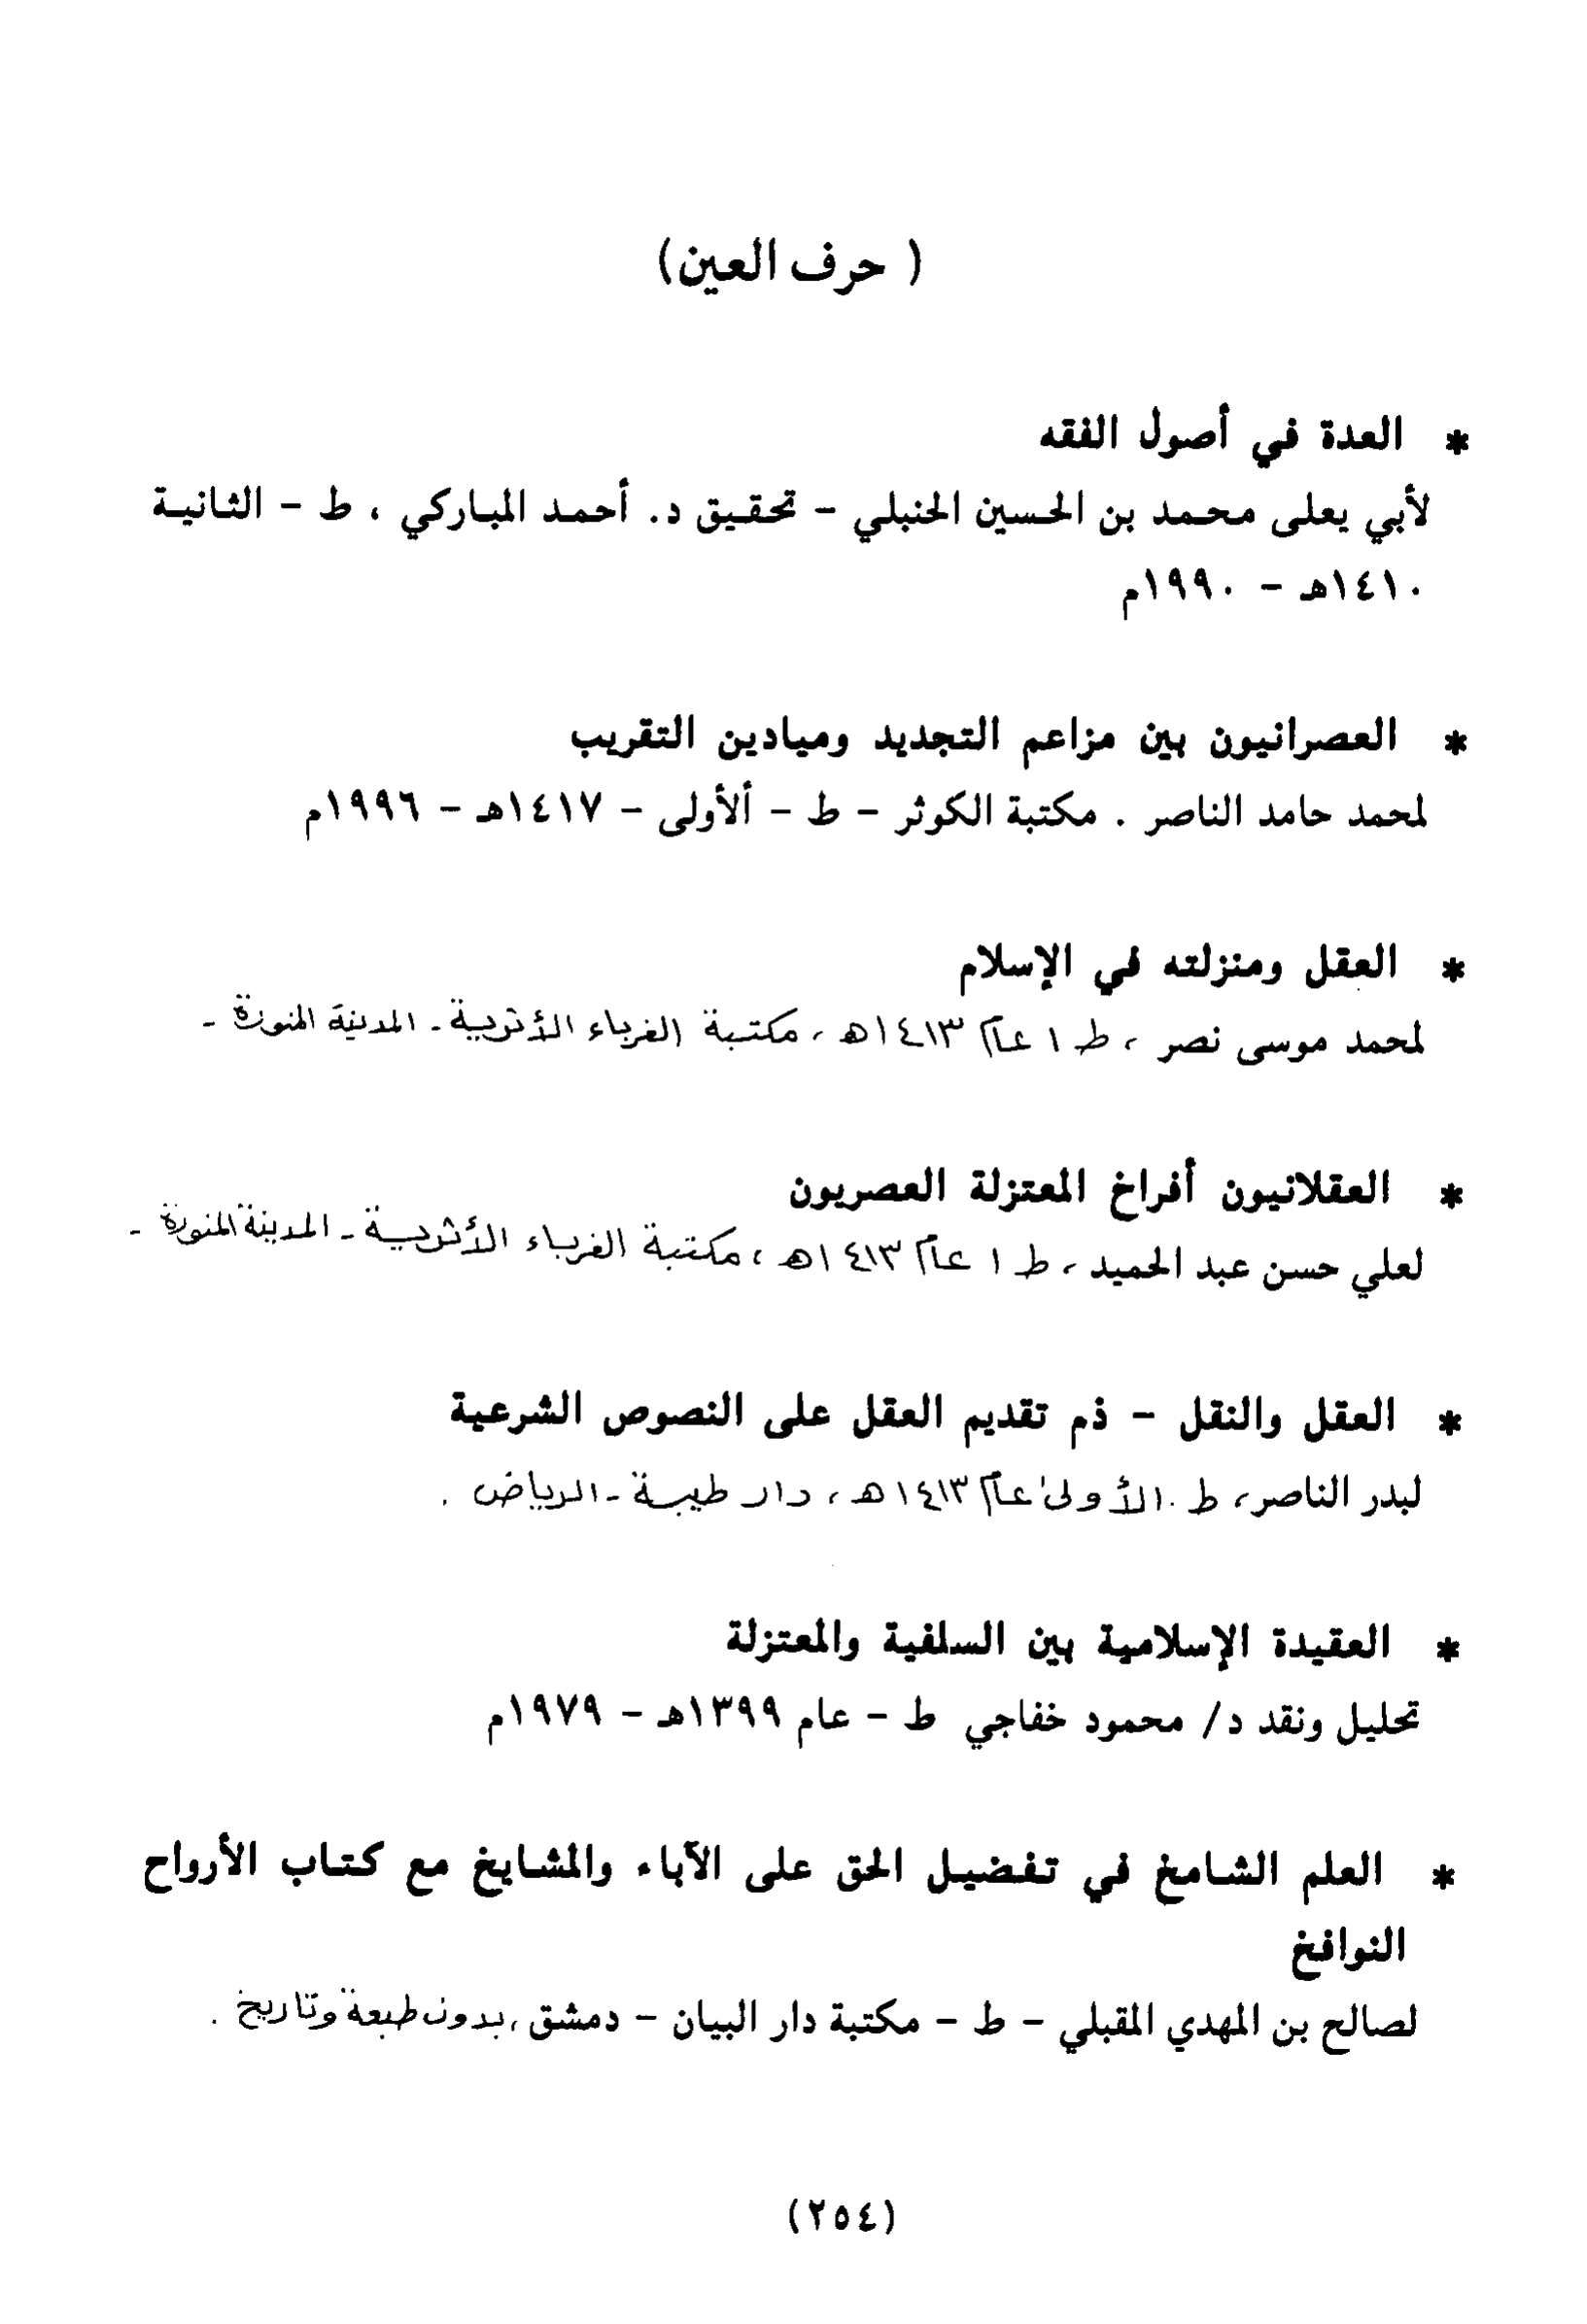 ( حرف العين)
* العدة في أصول الفقه
لأبي يعلى محمد بن الحسين الحنبلي - تحقيق د. أحمد المباركي ، ط - الثانية
١٤١٠هـ - ١٩٩٠م
* العصرانيون بين مزاعم التجديد وميادين التقريب
لمحمد حامد الناصر . مكتبة الكوثر - ط - ألأولى - ١٤١٧هـ - ١٩٩٦م
* العقل ومنزلته في الإسلام
لمحمد موسى نصر ، ط ١ عام ١٤١٣هـ ، مكتبة الغرباء الأثرية - المدينة المنورة -
* العقلانيون أفراخ المعتزلة العصريون
لعلي حسن عبد الحميد ، ط ١ عام ١٤١٣هـ ، مكتبة الغرباء الأثرية - المدينة المنورة -
* العقل والنقل - ذم تقديم العقل على النصوص الشرعية
لبدر الناصر ، ط . الأولى عام ١٤١٣هـ ، دار طيبة - الرياض .
* العقيدة الإسلامية بين السلفية والمعتزلة
تحليل ونقد د/ محمود خفاجي ط - عام ١٣٩٩هـ - ١٩٧٩م
* العلم الشامخ في تفضيل الحق على الآباء والمشايخ مع كتاب الأرواح
النوافخ
لصالح بن المهدي المقبلي - ط - مكتبة دار البيان - دمشق ، بدون طبعة وتاريخ .
(٢٥٤)